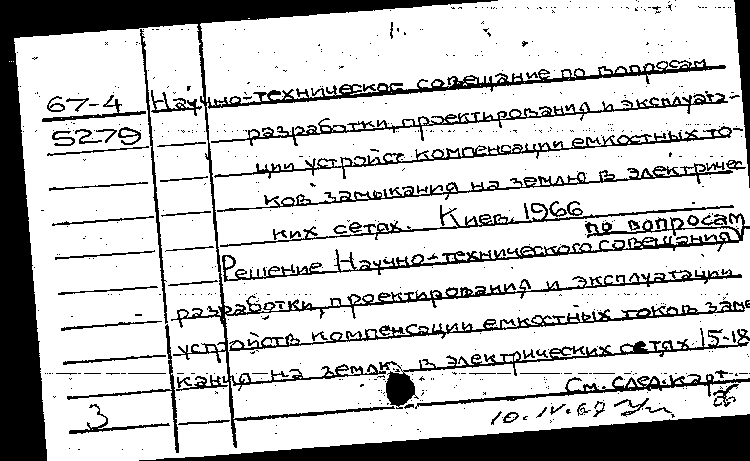 1.
67-4 Научно-техническое совещание по вопросам
5279 разработки, проектирования и эксплуата-
ции устройств компенсации емкостных то-
ков замыкания на землю в электричес-
ких сетях. Киев, 1966
по вопросам
Решение Научно-технического совещания
разработки, проектирования и эксплуатации
устройств компенсации емкостных токов замы-
кания на землю в электрических сетях 15-18
См. след. карт.
3 10.IV.67